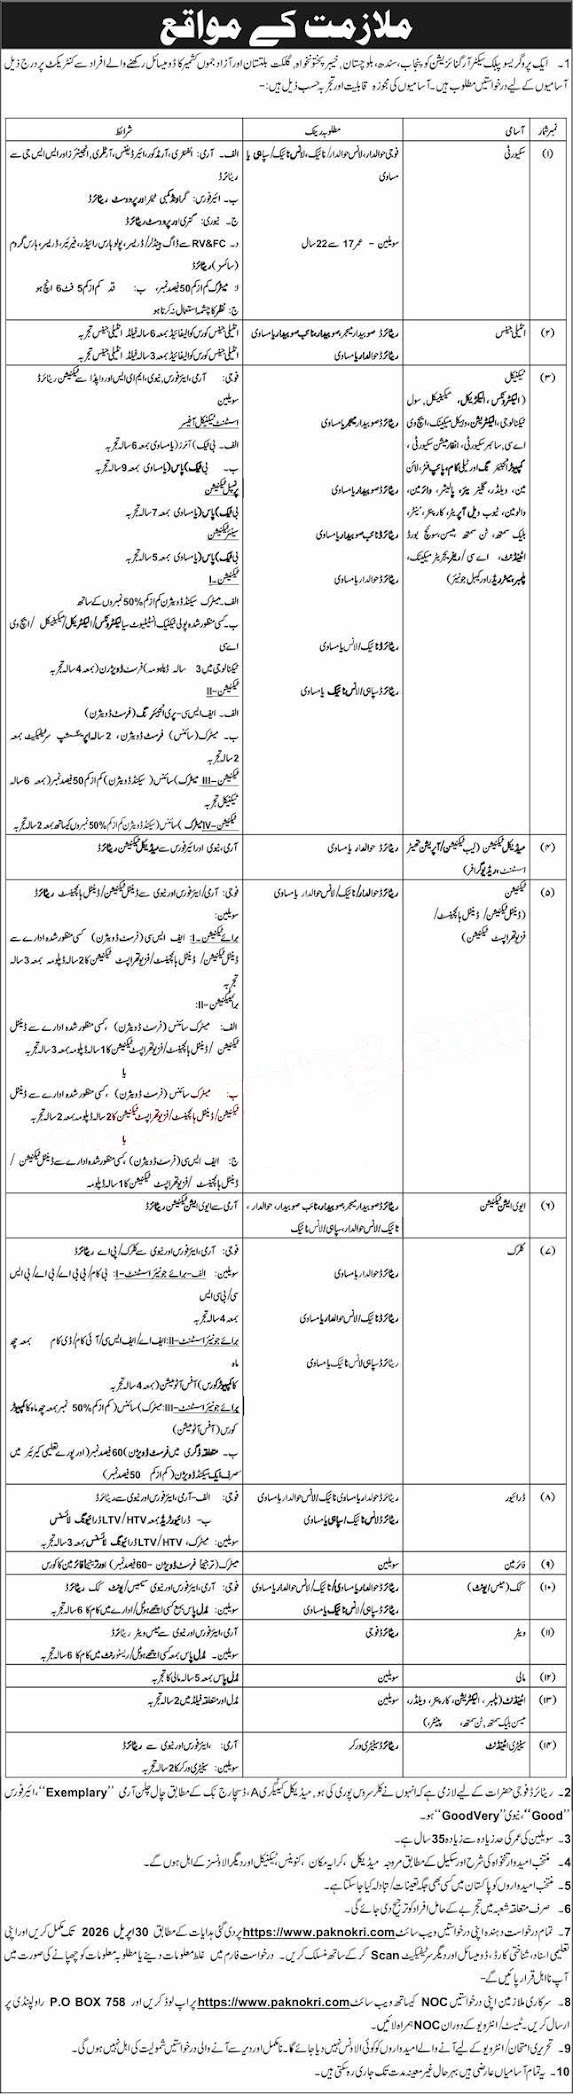 ملازمت کے مواقع
1- ایک پروگریسو پبلک سیکٹر آرگنائزیشن کو پنجاب، سندھ، بلوچستان، خیبر پختونخواہ، گلگت بلتستان اور آزاد جموں کشمیر کا ڈومیسائل رکھنے والے افراد سے کنٹریکٹ پر درج ذیل
آسامیوں کے لیے درخواستیں مطلوب ہیں۔ آسامیوں کی مجوزہ قابلیت اور تجربہ حسب ذیل ہیں:-
نمبر شمار آسامی مطلوبہ رینک شرائط
(۱) سکیورٹی فوجی حوالدار، لانس حوالدار/ نائیک، لانس نائیک/ سپاہی یا الف۔ آرمی: انفنٹری، آرمڈ کور، ائیر ڈیفنس، آرٹلری، انجینئرز اور ایس ایس جی سے
مساوی ریٹائرڈ
ب۔ ائیر فورس: گراؤنڈ کمبی ٹیئر اور پرووسٹ ریٹائرڈ
ج۔ نیوی: گنری اور پرووسٹ ریٹائرڈ
سویلین - عمر 17 سے 22 سال د۔ RV&FC سے ڈاگ ہینڈلر/ ڈریسر، پولو ہارس رائیڈر، فیرئیر، ڈریسر، ہارس گروم
(سائس) ریٹائرڈ
ا: میٹرک کم از کم 50 فیصد نمبر، ب: قد کم از کم 5 فٹ 6 انچ ہو
ج: نظر کا چشمہ استعمال نہ کرتا ہو
(۲) انٹیلی جنس ریٹائرڈ صوبیدار میجر، صوبیدار، نائب صوبیدار یا مساوی انٹیلی جنس کورس کوالیفائیڈ بمعہ 6 سالہ فیلڈ انٹیلی جنس تجربہ
ریٹائرڈ حوالدار یا مساوی انٹیلی جنس کورس کوالیفائیڈ بمعہ 3 سالہ فیلڈ انٹیلی جنس تجربہ
(۳) ٹیکنیکل فوجی: آرمی، ائیر فورس، نیوی، ایم ای ایس اور واپڈا سے ٹیکنیشن ریٹائرڈ
(الیکٹرونکس، الیکٹریکل، مکینیکل، سول سویلین
ٹیکنالوجی، الیکٹریشن، وہیکل مکینک، ایچ وی ریٹائرڈ صوبیدار میجر یا مساوی اسسٹنٹ ٹیکنیکل آفیسر
اے سی، سائبر سکیورٹی، انفارمیشن سکیورٹی، الف۔ بی ٹیک آنرز (یا مساوی بمعہ 6 سالہ تجربہ
ب۔ بی ٹیک) پاس (یا مساوی بمعہ 9 سالہ تجربہ
ریٹائرڈ صوبیدار یا مساوی پرنسپل ٹیکنیشن
بی ٹیک) پاس (یا مساوی بمعہ 7 سالہ تجربہ
ریٹائرڈ نائب صوبیدار یا مساوی سینئر ٹیکنیشن
بی ٹیک) پاس (یا مساوی بمعہ 5 سالہ تجربہ
ریٹائرڈ حوالدار یا مساوی ٹیکنیشن-I
الف۔ میٹرک سیکنڈ ڈویژن کم از کم %50 نمبروں کے ساتھ
ریٹائرڈ نائیک/ لانس یا مساوی ب۔ کسی منظور شدہ پولی ٹیکنیک انسٹیٹیوٹ سے الیکٹرونکس/ الیکٹریکل/ مکینیکل/ ایچ وی
اے سی
ٹیکنالوجی میں 3 سالہ ڈپلومہ) فرسٹ ڈویژن (بمعہ 4 سالہ تجربہ
ریٹائرڈ سپاہی/ لانس نائیک یا مساوی ٹیکنیشن-II
الف۔ ایف ایس سی- پری انجینئرنگ (فرسٹ ڈویژن)
ب۔ میٹرک (سائنس) فرسٹ ڈویژن، 2 سالہ اپرنٹسشپ سرٹیفکیٹ بمعہ
2 سالہ تجربہ
ٹیکنیشن-III میٹرک) سائنس (سیکنڈ ڈویژن) کم از کم 50 فیصد نمبر (بمعہ 6 سالہ
ٹیکنیکل تجربہ
ٹیکنیشن-IV میٹرک) سائنس (سیکنڈ ڈویژن کم از کم %50 نمبروں کیساتھ بمعہ 2 سالہ تجربہ
(۴) میڈیکل ٹیکنیشن (لیب ٹیکنیشن/ آپریشن تھیٹر ریٹائرڈ حوالدار یا مساوی آرمی، نیوی اور ائیر فورس سے میڈیکل ٹیکنیشن ریٹائرڈ
اسسٹنٹ، ریڈیوگرافر)
(۵) ٹیکنیشن ریٹائرڈ حوالدار/ نائیک/ لانس حوالدار یا مساوی فوجی: آرمی/ ائیر فورس اور نیوی سے ڈینٹل ٹیکنیشن/ ڈینٹل ہائجینسٹ ریٹائرڈ
(ڈینٹل ٹیکنیشن/ ڈینٹل ہائجینسٹ/ سویلین:
فزیوتھراپسٹ ٹیکنیشن) برائے ٹیکنیشن-I: ایف ایس سی (فرسٹ ڈویژن) کسی منظور شدہ ادارے سے
ڈینٹل ٹیکنیشن/ ڈینٹل ہائجینسٹ/ فزیوتھراپسٹ ٹیکنیشن کا 2 سالہ ڈپلومہ بمعہ 3 سالہ
تجربہ
برائے ٹیکنیشن-II:
الف: میٹرک سائنس (فرسٹ ڈویژن)، کسی منظور شدہ ادارے سے ڈینٹل
ٹیکنیشن/ ڈینٹل ہائجینسٹ/ فزیوتھراپسٹ ٹیکنیشن کا 1 سالہ ڈپلومہ بمعہ 3 سالہ تجربہ
یا
ب: میٹرک سائنس (فرسٹ ڈویژن)، کسی منظور شدہ ادارے سے ڈینٹل
ٹیکنیشن/ ڈینٹل ہائجینسٹ/ فزیوتھراپسٹ ٹیکنیشن کا 2 سالہ ڈپلومہ بمعہ 2 سالہ تجربہ
یا
ج: ایف ایس سی (فرسٹ ڈویژن)، کسی منظور شدہ ادارے سے ڈینٹل ٹیکنیشن/
ڈینٹل ہائجینسٹ/ فزیوتھراپسٹ ٹیکنیشن کا 1 سالہ ڈپلومہ
(۶) ایوی ایشن ٹیکنیشن ریٹائرڈ صوبیدار میجر، صوبیدار، نائب صوبیدار، حوالدار، آرمی سے ایوی ایشن ٹیکنیشن ریٹائرڈ
نائیک/ لانس حوالدار، سپاہی/ لانس نائیک
(۷) کلرک فوجی: آرمی، ائیر فورس اور نیوی سے کلرک/ پی اے ریٹائرڈ
ریٹائرڈ حوالدار یا مساوی سویلین: الف- برائے جونیئر اسسٹنٹ-I: بی کام/ بی بی اے/ بی اے/ بی ایس
سی/ بی سی ایس
ریٹائرڈ نائیک/ لانس حوالدار یا مساوی بمعہ 4 سالہ تجربہ
برائے جونیئر اسسٹنٹ-II: ایف اے/ ایف ایس سی/ آئی کام/ ڈی کام بمعہ چھ
ریٹائرڈ سپاہی لانس نائیک یا مساوی ماہ
کا کمپیوٹر کورس (آفس آٹومیشن) بمعہ 4 سالہ تجربہ
برائے جونیئر اسسٹنٹ-III: میٹرک) سائنس (کم از کم %50 نمبر بمعہ چھ ماہ کا کمپیوٹر
کورس (آفس آٹومیشن)
ب۔ متعلقہ ڈگری میں فرسٹ ڈویژن) 60 فیصد نمبر (اور پورے تعلیمی کیرئیر میں
صرف ایک سیکنڈ ڈویژن (کم از کم 50 فیصد نمبر)
(۸) ڈرائیور ریٹائرڈ حوالدار یا مساوی نائیک/ لانس حوالدار یا مساوی فوجی: الف- آرمی، ائیر فورس اور نیوی سے ریٹائرڈ
لانس نائیک/ سپاہی یا مساوی ب- ڈرائیور ٹریڈ بمعہ LTV/HTV ڈرائیونگ لائسنس
سویلین: میٹرک، LTV/HTV ڈرائیونگ لائسنس بمعہ 3 سالہ تجربہ
(۹) فائرمین سویلین میٹرک (ترجیحاً فرسٹ ڈویژن -60 فیصد نمبر) اور ترجیحاً فائرمین کا کورس
(۱۰) کک (میس/ یونٹ) ریٹائرڈ حوالدار یا مساوی/ نائیک/ لانس حوالدار یا مساوی فوجی: آرمی، ائیر فورس اور نیوی سے میس/ یونٹ کک ریٹائرڈ
سپاہی/ لانس نائیک یا مساوی سویلین: مڈل پاس بمع کسی اچھے ہوٹل/ ادارے میں کام کا 6 سالہ تجربہ
(۱۱) ویٹر ریٹائرڈ فوجی آرمی، ائیر فورس اور نیوی سے میس ویٹر ریٹائرڈ
سویلین۔ مڈل پاس بمعہ کسی اچھے ہوٹل/ ریسٹورنٹ میں کام کا 6 سالہ تجربہ
(۱۲) مالی سویلین مڈل پاس بمعہ 5 سالہ مالی کا تجربہ
(۱۳) اٹینڈنٹ (پلمبر، الیکٹریشن، کارپینٹر، ویلڈر، سویلین مڈل اور متعلقہ فیلڈ میں 2 سالہ تجربہ
میسن، بلیک سمتھ، ٹن سمتھ، پینٹر)
(۱۴) سینٹری اٹینڈنٹ ریٹائرڈ سینٹری ورکر آرمی، ائیر فورس اور نیوی سے ریٹائرڈ
سویلین: سینٹری ورکر کا 2 سالہ تجربہ
2- ریٹائرڈ فوجی حضرات کے لیے لازمی ہے کہ انہوں نے کلر سروس پوری کی ہو، میڈیکل کیٹیگری A، ڈسچارج بک کے مطابق چال چلن آرمی "Exemplary"، ائیر فورس
"Good"، نیوی "GoodVery" ہو۔
3- سویلین کی عمر کی حد زیادہ سے زیادہ 35 سال ہے۔
4- منتخب امیدوار تنخواہ کی شرح اور سکیل کے مطابق مروجہ میڈیکل، کرایہ مکان، کنوینس، ٹیکنیکل اور دیگر الاؤنسز کے اہل ہوں گے۔
5- منتخب امیدواروں کو پاکستان میں کسی بھی جگہ تعینات/ تبادلہ کیا جا سکتا ہے۔
6- صرف متعلقہ شعبہ میں تجربے کے حامل افراد کو ترجیح دی جائے گی۔
7- تمام درخواست دہندہ اپنی درخواستیں ویب سائٹ https://www.paknokri.com پر دی گئی ہدایات کے مطابق 30 اپریل 2026 تک مکمل کریں اور اپنی
تعلیمی اسناد، شناختی کارڈ، ڈومیسائل اور دیگر سرٹیفکیٹ Scan کر کے ساتھ منسلک کریں۔ درخواست فارم میں غلط معلومات دینے یا مطلوبہ معلومات کو چھپانے کی صورت میں
آپ نااہل قرار پائیں گے۔
8- سرکاری ملازمین اپنی درخواستیں NOC کیساتھ ویب سائٹ https://www.paknokri.com پر اپ لوڈ کریں اور P.O BOX 758 راولپنڈی پر
ارسال کریں۔ ٹیسٹ/ انٹرویو کے دوران NOC ہمراہ لائیں۔
9- تحریری امتحان/ انٹرویو کے لیے آنے والے امیدواروں کو کوئی الاؤنس نہیں دیا جائے گا۔ نامکمل اور دیر سے آنے والی درخواستیں شمولیت کی اہل نہیں ہوں گی۔
10- یہ تمام آسامیاں عارضی ہیں بہرحال غیر معینہ مدت تک جاری رہ سکتی ہیں۔